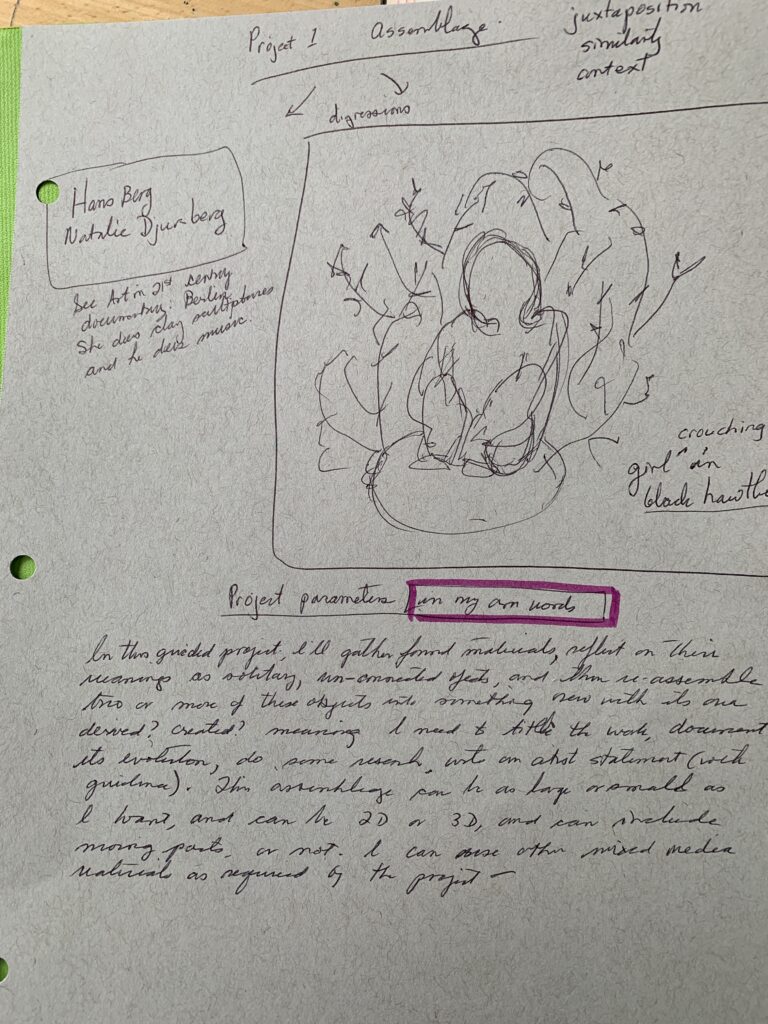 Project 1 Assemblage.
juxtaposition
similarity
context
digressions
Hans Berg
Natalie Djurberg
See Art in 21st century
documentary: Berlin.
She does clay sculptures
and he does music.
crouching
girl ^ in
black hawtho
Project parameters in my own words
In this guided project, I'll gather found materials, reflect on their
meanings as solitary, un-connected objects, and then re-assemble
two or more of these objects into something new with its own
derived? created? meaning. I need to title the work, document
its evolution, do some research, write an artist statement (with
guidance). This assemblage can be as large or small as
I want, and can be 2D or 3D, and can include
moving parts, or not. I can use other mixed media
materials as required by the project —